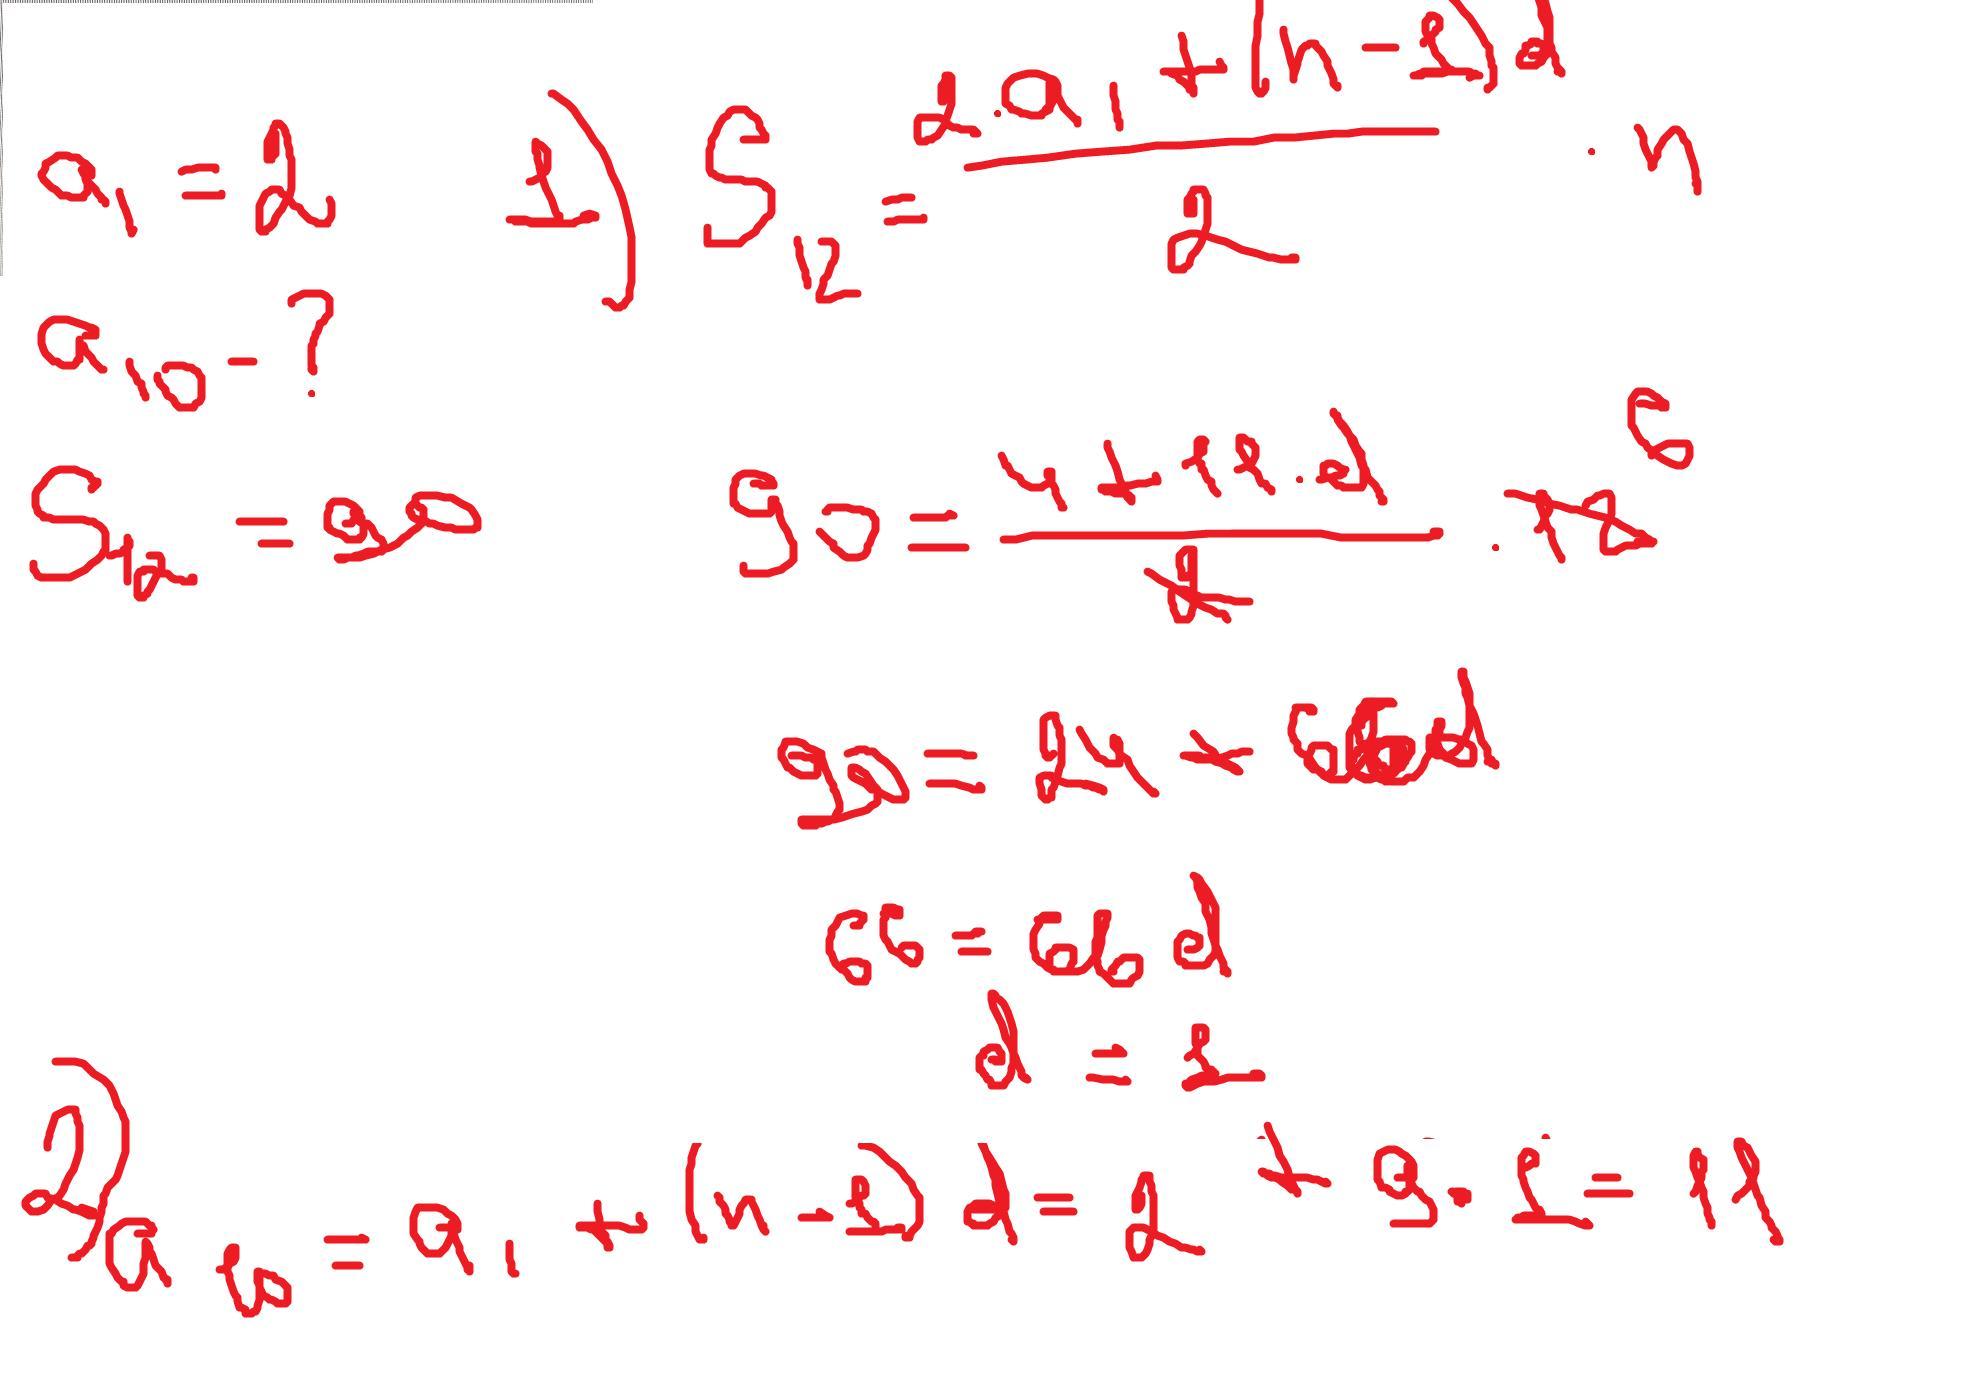 a₁ = 2
a₁₀ - ?
S₁₂ = 90
1) S₁₂ = (2·a₁ + (n-1)d)/2 · n
90 = (4 + 11·d)/2 · 12 6
90 = 24 + 66d
66 = 66d
d = 1
2) a₁₀ = a₁ + (n-1)d = 2 + 9·1 = 11